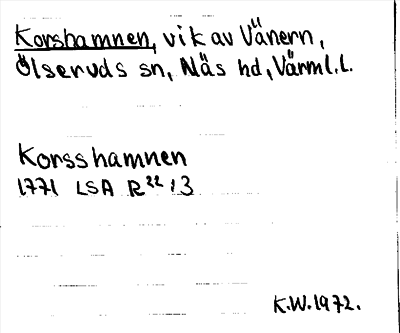 Korshamnen, vik av Vänern,
Ölseruds sn, Näs hd, Värml. L.
Korsshamnen
1771 LSA R22:13
K.W. 1972.